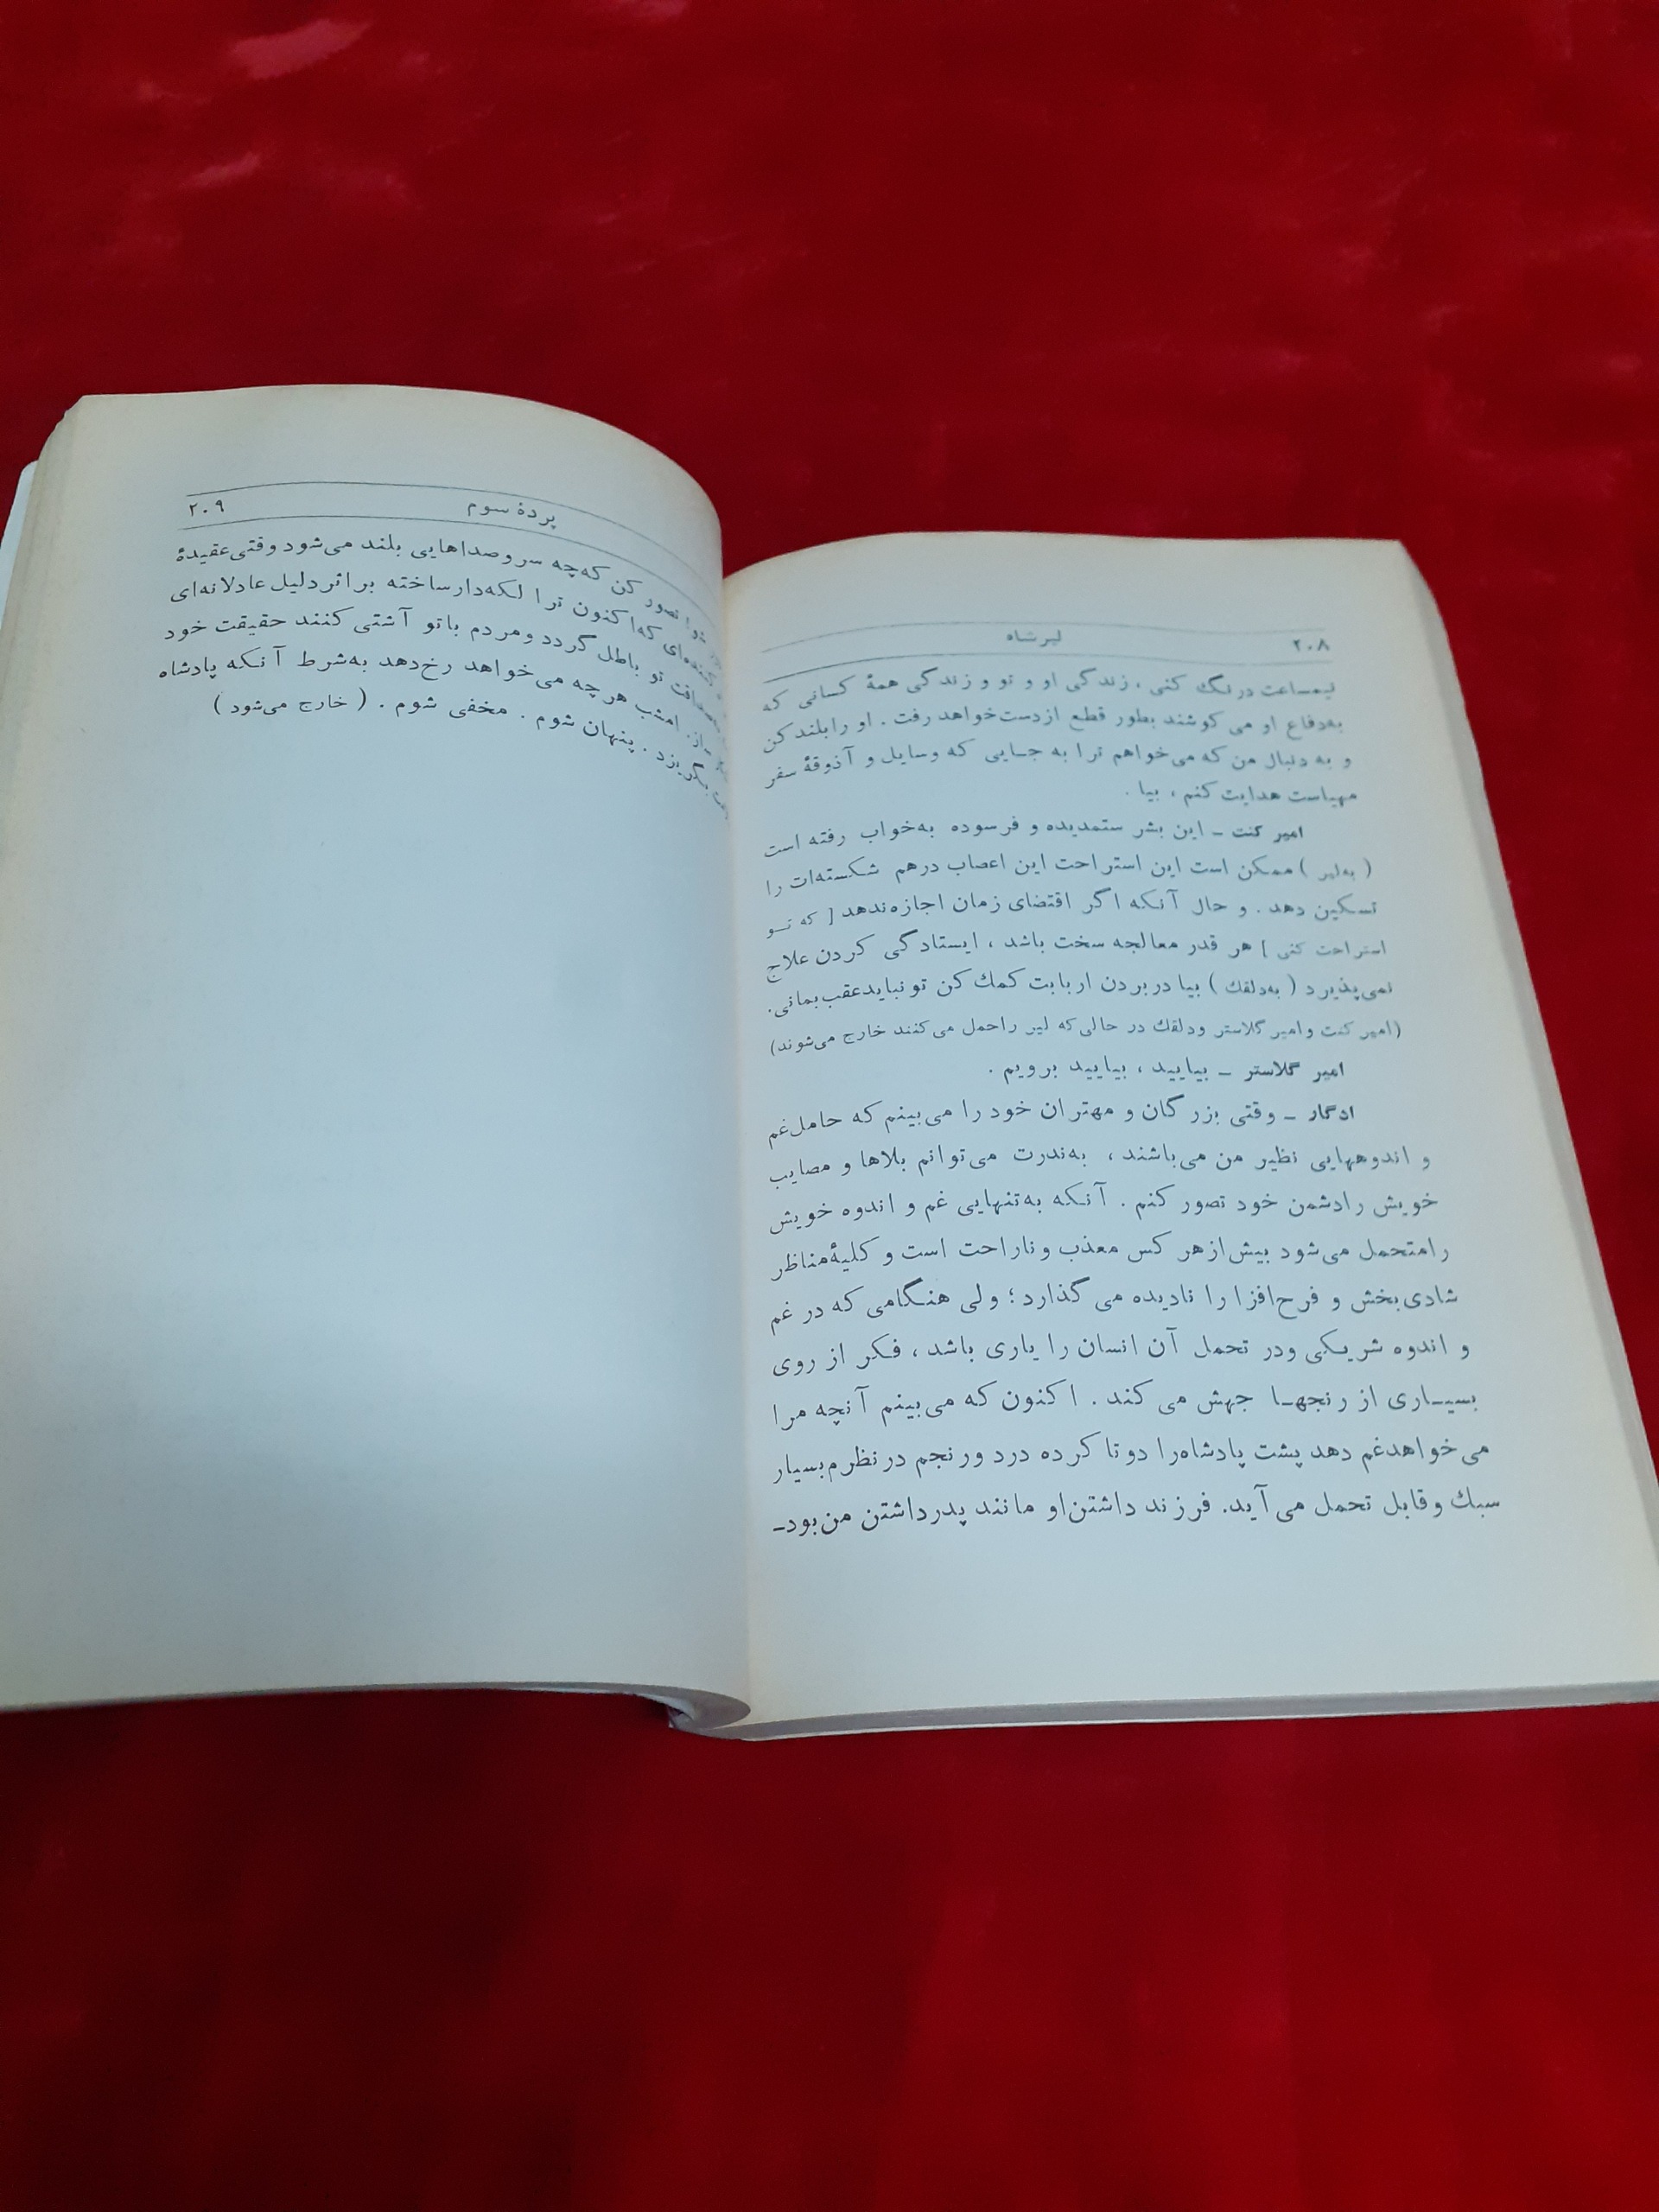 ۲۰۸
لیرشاه
نیمساعت درنگ کنی ، زندگی او و تو و زندگی همهٔ کسانی که
به‌دفاع او می‌کوشند بطور قطع ازدست‌خواهد رفت . او را بلند کن
و به دنبال من که می‌خواهم ترا به جـایی که وسایل و آذوقهٔ سفر
مهیاست هدایت کنم ، بیا .
امیر کنت ــ این بشر ستمدیده و فرسوده به‌خواب رفته است
( به‌لیر ) ممکن است این استراحت این اعصاب درهم شکسته‌ات را
تسکین دهد . و حال آنکه اگر اقتضای زمان اجازه‌ندهد [ که تـو
استراحت کنی ] هر قدر معالجه سخت باشد ، ایستادگی کردن علاج
نمی‌پذیرد ( به‌دلقك ) بیا در بردن اربابت کمك کن تو نباید عقب بمانی.
(امیر کنت و امیر گلاستر ودلقك در حالی‌که لیر راحمل می‌کنند خارج می‌شوند)
امیر گلاستر ــ بیایید ، بیایید برویم .
ادگار ــ وقتی بزرگان و مهتران خود را می‌بینم که حامل‌غم
و اندوههایی نظیر من می‌باشند ، به‌ندرت می‌توانم بلاها و مصایب
خویش رادشمن خود تصور کنم . آنکه به‌تنهایی غم و اندوه خویش
رامتحمل می‌شود بیش‌ازهر کس معذب و ناراحت است و کلیهٔ‌مناظر
شادی‌بخش و فرح‌افزا را نادیده می گذارد؛ ولی هنگامی که در غم
و اندوه شریکی ودر تحمل آن انسان را یاری باشد ، فکر از روی
بسیـاری از رنجهـا جهش می کند . اکنون که می‌بینم آنچه مرا
می‌خواهدغم دهد پشت پادشاه‌را دوتا کرده درد ورنجم درنظرم‌بسیار
سبك وقابل تحمل می‌آید. فرزند داشتن‌او مانند پدرداشتن من‌بود-
پردهٔ سوم
۲۰۹
شو! تصور کن که‌چه سروصداهایی بلند می‌شود وقتی‌عقیدهٔ
کننده‌ای که‌اکنون ترا لکه‌دارساخته براثردلیل عادلانه‌ای
تو باطل گردد ومردم باتو آشتی کنند حقیقت خود
از. امشب هرچه می‌خواهد رخ‌دهد به‌شرط آنکه پادشاه
بگریزد . پنهان شوم . مخفی شوم . ( خارج می‌شود )